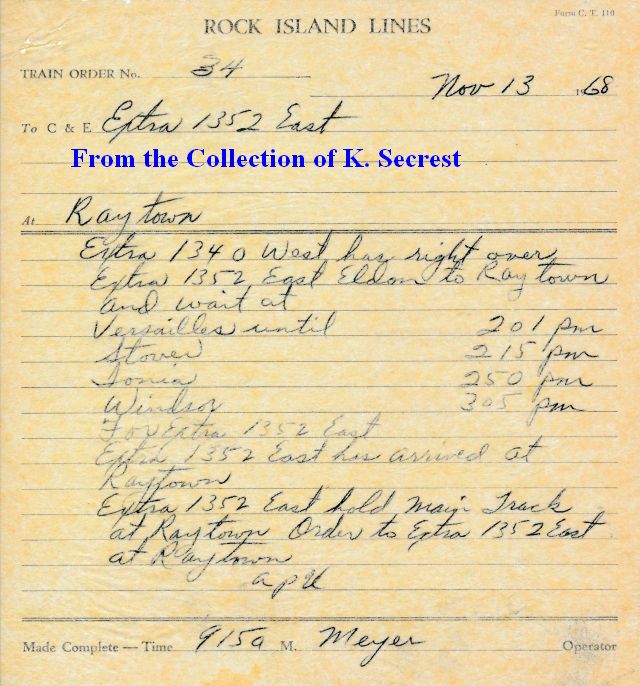 Form C. T. 110
ROCK ISLAND LINES
TRAIN ORDER No. 34
Nov 13 1968
To C & E Extra 1352 East
From the Collection of K. Secrest
At Raytown
Extra 1340 West has right over
Extra 1352 East Eldon to Raytown
and wait at
Versailles until 201 pm
Stover 215 pm
Ionia 250 pm
Windsor 305 pm
For Extra 1352 East
Extra 1352 East has arrived at
Raytown
Extra 1352 East hold Main Track
at Raytown Order to Extra 1352 East
at Raytown
Made Complete — Time 915a M. Meyer Operator